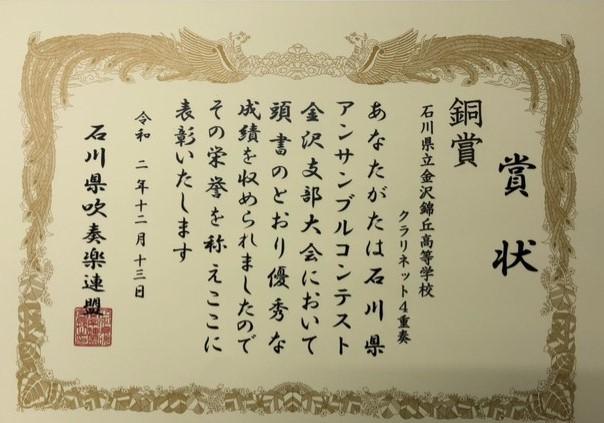 賞状
銅賞
石川県立金沢錦丘高等学校
クラリネット4重奏
あなたがたは石川県
アンサンブルコンテスト
金沢支部大会において
頭書のとおり優秀な
成績を収められましたので
その栄誉を称えここに
表彰いたします
令和二年十二月十三日
石川県吹奏楽連盟